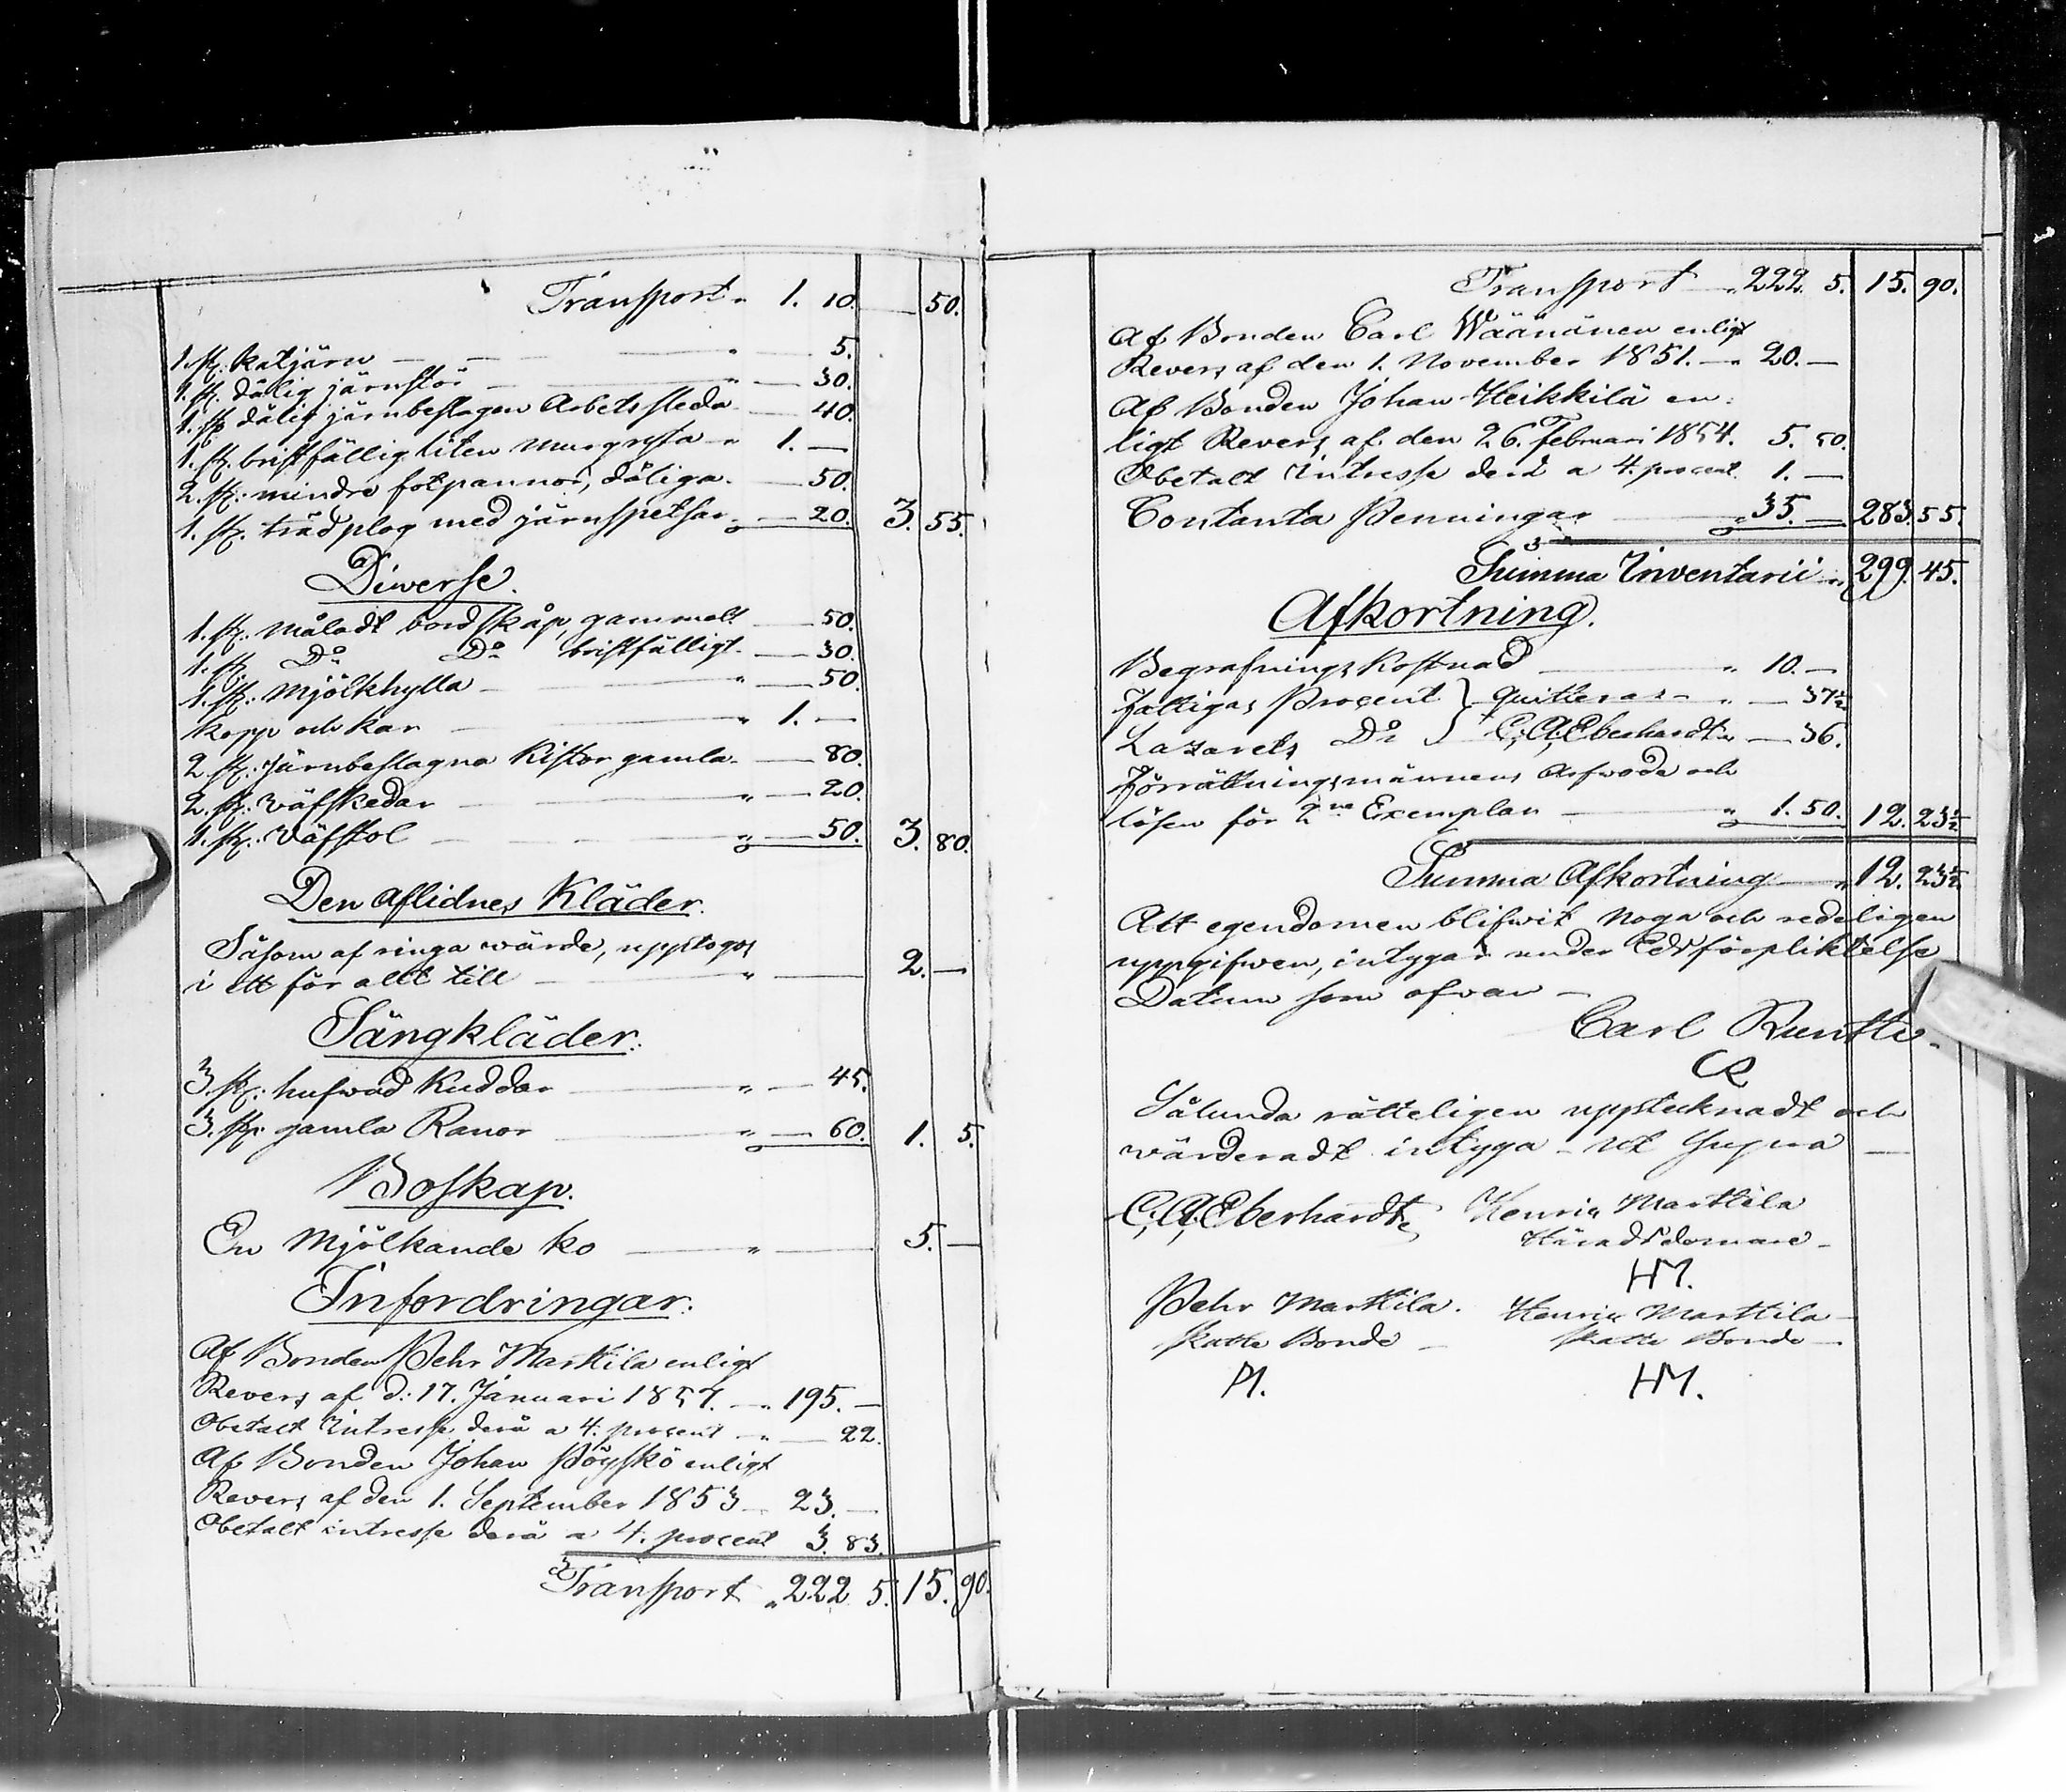 Transport " 1. 10. — 50.
1. st. katjärn — — " — 5.
1. st. dålig järnstör — " — 30.
1. st. dålig järnbeslagen Arbetssleda — 40.
1. st. bristfällig liten murgryta " 1. —
2. st. mindre fotpannor, dåliga — 50.
1. st. trädplog med järnspetsar " — 20. 3. 55.
Diverse.
1. st. måladt bordskåp, gammalt — 50.
1. st. Do Do bristfälligt — 30.
1. st. Mjölkhylla — " — 50.
Kopp och kar — " 1. —
2. st. järnbeslagna Kistor gamla — 80.
2. st. wäfskedar — " — 20.
1. st. Väfstol — " — 50. 3. 80.
Den Aflidnes Kläder.
Såsom af ringa wärde, upptogos
i ett för allt till — " — 2. —
Sängkläder.
3. st. hufwud Kuddar — " — 45.
3. st. gamla Ranor — " — 60. 1. 5.
Boskap.
En Mjölkande ko — " — 5. —
Infordringar.
Af Bonden Pehr Marttila enligt
Revers af d: 17. Januari 1857. — " 195. —
Obetalt Intresse derå a 4. procent — " — 22.
Af Bonden Johan Pöyskö enligt
Revers af den 1. September 1853 — 23. —
Obetalt intresse derå a 4. procent 3. 83.
Transport " 222 5. 15. 90.
Transport — " 222. 5. 15. 90.
Af Bonden Carl Wäänänen enligt
Revers af den 1. November 1851. — " 20. —
Af Bonden Johan Heikkilä en:
ligt Revers af den 26. Februari 1854. 5. 50.
Obetalt Intresse derå a 4. procent 1. —
Contanta Penningar — " 35. — 283. 55.
Summa Inventarii " 299. 45.
Afkortning.
Begrafnings Kostnad — " 10. —
Fattigas Procent } quitteras — " — 37½
Lazarets Do } C, A, Eberhardt " — 36.
Förrättningsmännens Arfwode och
lösen för 2ne Exemplar — " 1. 50. 12. 23½
Summa Afkortning — " 12. 23½
Att egendomen blifwit noga och redeligen
uppgifwen, intygar under Edsförpliktelse
Datum som ofwan —
Carl Runtti
CR
Sålunda rätteligen upptecknadt och
wärderadt intyga — ut Supra —
C, A, Eberhardt Henric Marttila
Häradsdomare —
HM.
Pehr Marttila. Henric Marttila —
Skatte Bonde — Skatte Bonde —
PM. HM.